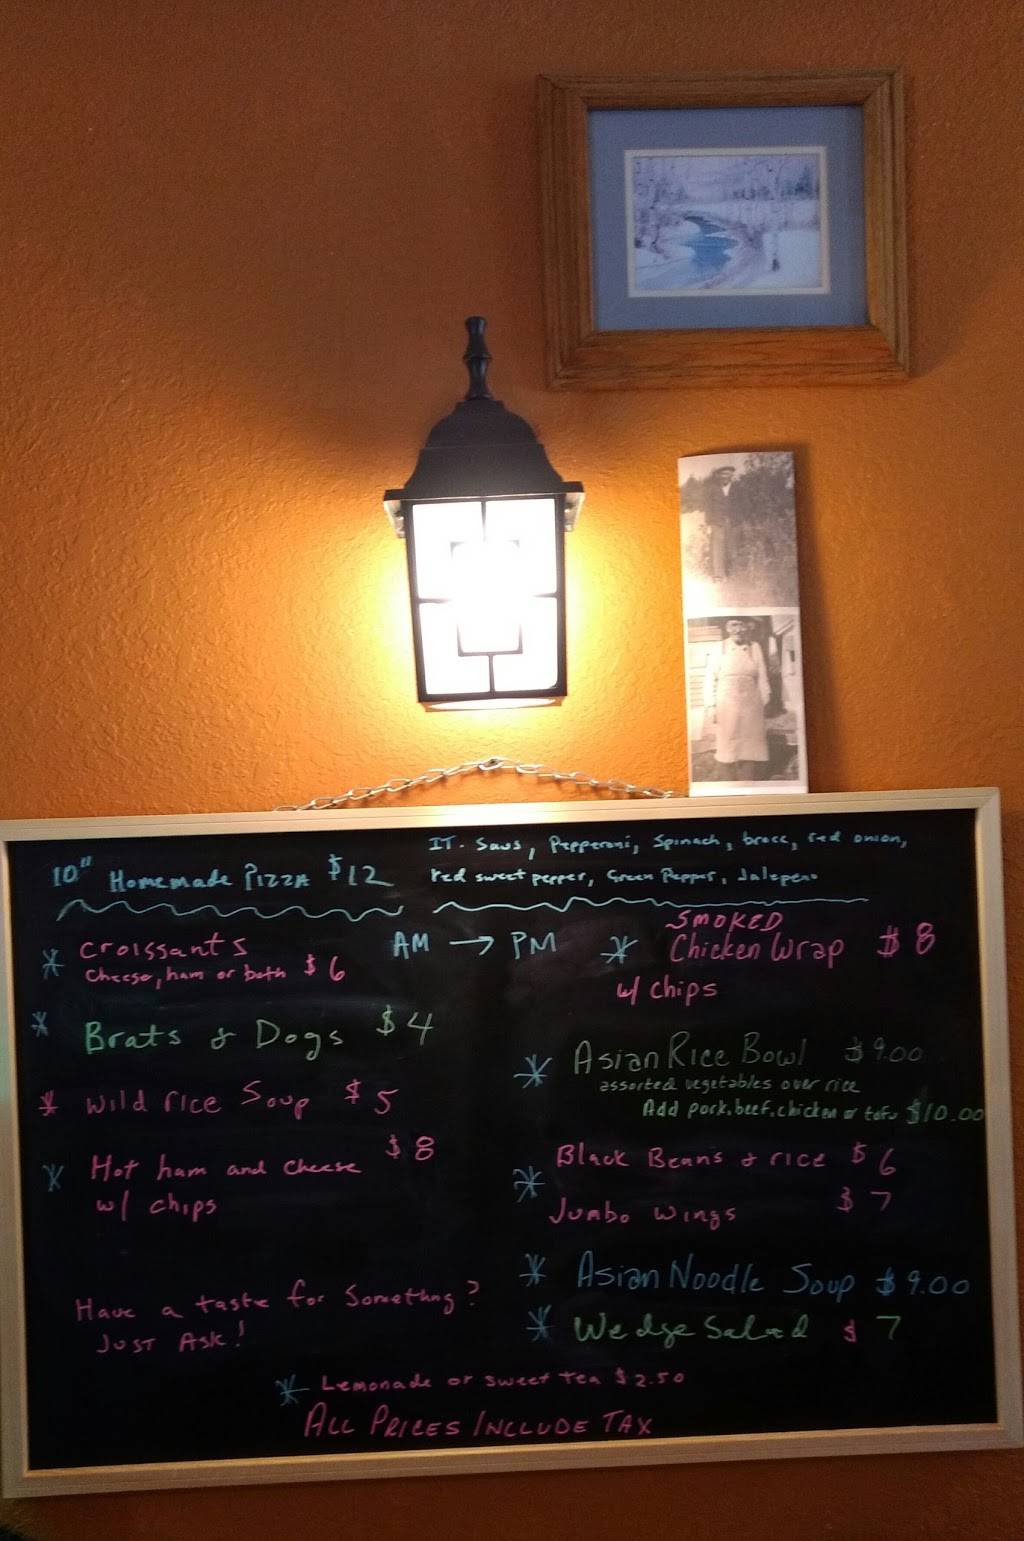 10" Homemade Pizza $12
IT. Saus, Pepperoni, Spinach, brocc, red onion,
red sweet pepper, Green Pepper, Jalepeno
AM → PM
* Croissants
Cheese, ham or both $6
* Brats & Dogs $4
* Wild rice Soup $5
* Hot ham and cheese $8
w/ chips
Have a taste for Something?
Just Ask!
SMOKED
* Chicken Wrap $8
w/ chips
* Asian Rice Bowl $9.00
assorted vegetables over rice
Add pork, beef, chicken or tofu $10.00
* Black Beans & rice $6
Jumbo wings $7
* Asian Noodle Soup $9.00
* Wedge Salad $7
* Lemonade or sweet tea $2.50
ALL PRICES INCLUDE TAX